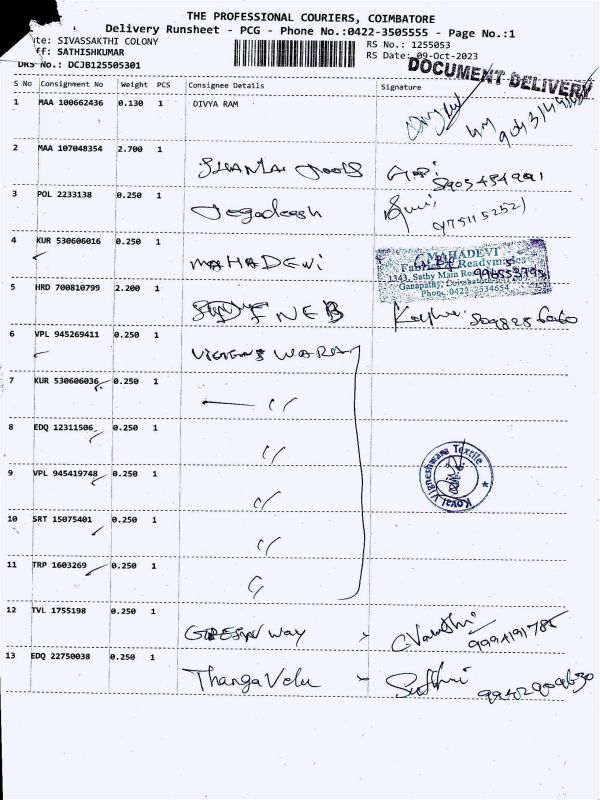 THE PROFESSIONAL COURIERS, COIMBATORE
Delivery Runsheet - PCG - Phone No.:0422-3505555 - Page No.:1
te: SIVASSAKTHI COLONY
RS No.: 1255053
ff: SATHISHKUMAR
RS Date: 09-Oct-2023
DRS No.: DCJB125505301
DOCUMENT DELIVERY
S No Consignment No Weight PCS Consignee Details Signature
1 MAA 100662436 0.130 1 DIVYA RAM
2 MAA 107048354 2.700 1
3 POL 2233138 0.250 1 Jegadeesh
4 KUR 530606016 0.250 1 MAHADEWi
MAHADEVI
Fabrics & Readymades
1343, Sathy Main Road
Ganapathy, Coimbatore
Phone: 0422 - 2534654
5 HRD 700810799 2.200 1
6 VPL 945269411 0.250 1
7 KUR 530606036 0.250 1 〃
8 EDQ 12311506 0.250 1 〃
9 VPL 945419748 0.250 1 〃
Koval Vigneshwara Textile
10 SRT 15075401 0.250 1 〃
11 TRP 1603269 0.250 1
12 TVL 1755198 0.250 1 GREEN WAY
13 EDQ 22750038 0.250 1 Thanga Velu